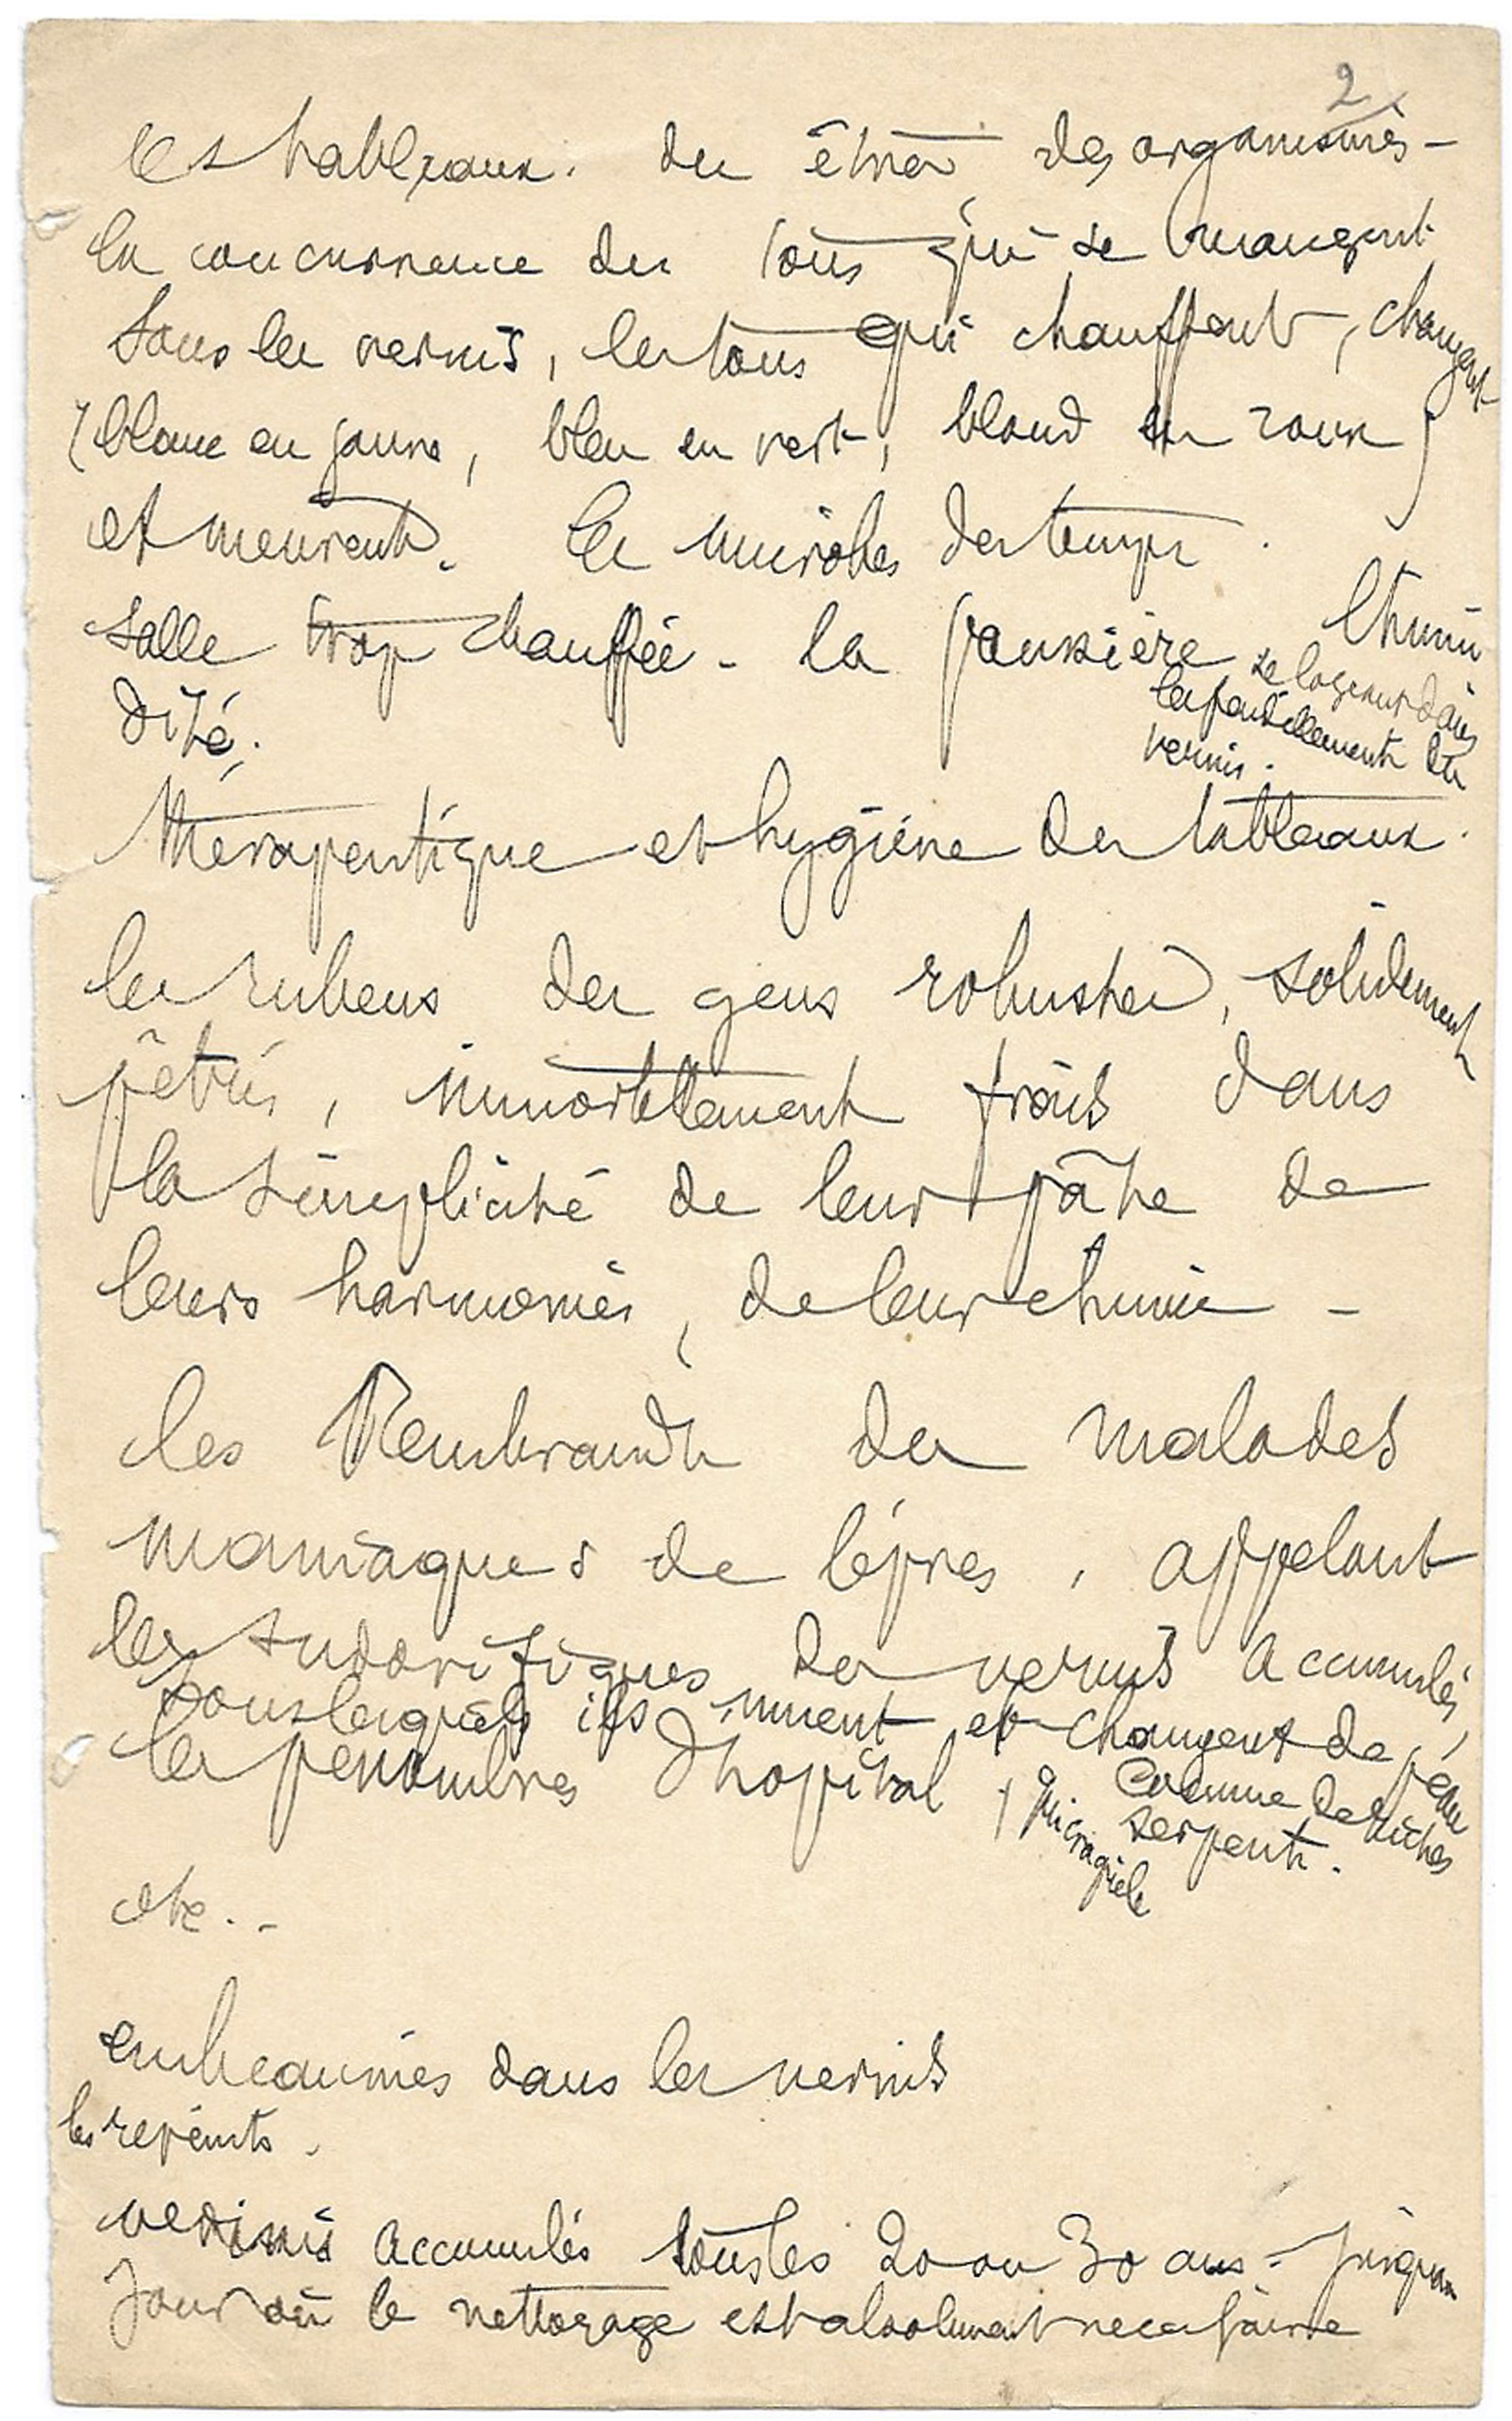 2
les tableaux. des êtres, des organismes -
la concurrence des tons qui se mangent
sous les vernis, les tons qui chauffent, changent
(blanc en jaune, bleu en vert, blond en roux)
et meurent. les microbes des temps.
salle trop chauffée - la poussière l'humi
dité.
se logeant dans
les fendillements du
vernis.
thérapeutique et hygiène des tableaux.
les rubens des gens robustes, solidement
pétris, immortellement frais dans
la simplicité de leur pâte de
leurs harmonies, de leur chimie -
les Rembrandt des malades
maniaques de lèpres, appelant
les sudorifiques des vernis accumulés,
sous lesquels ils muent et changent de peau
comme de riches
serpents.
les pénombres d'hopital
etc..
embeaumés dans les vernis
les repeints.
vernis accumulés tous les 20 ou 30 ans - jusqu'au
jour où le nettoyage est absolument necessaire